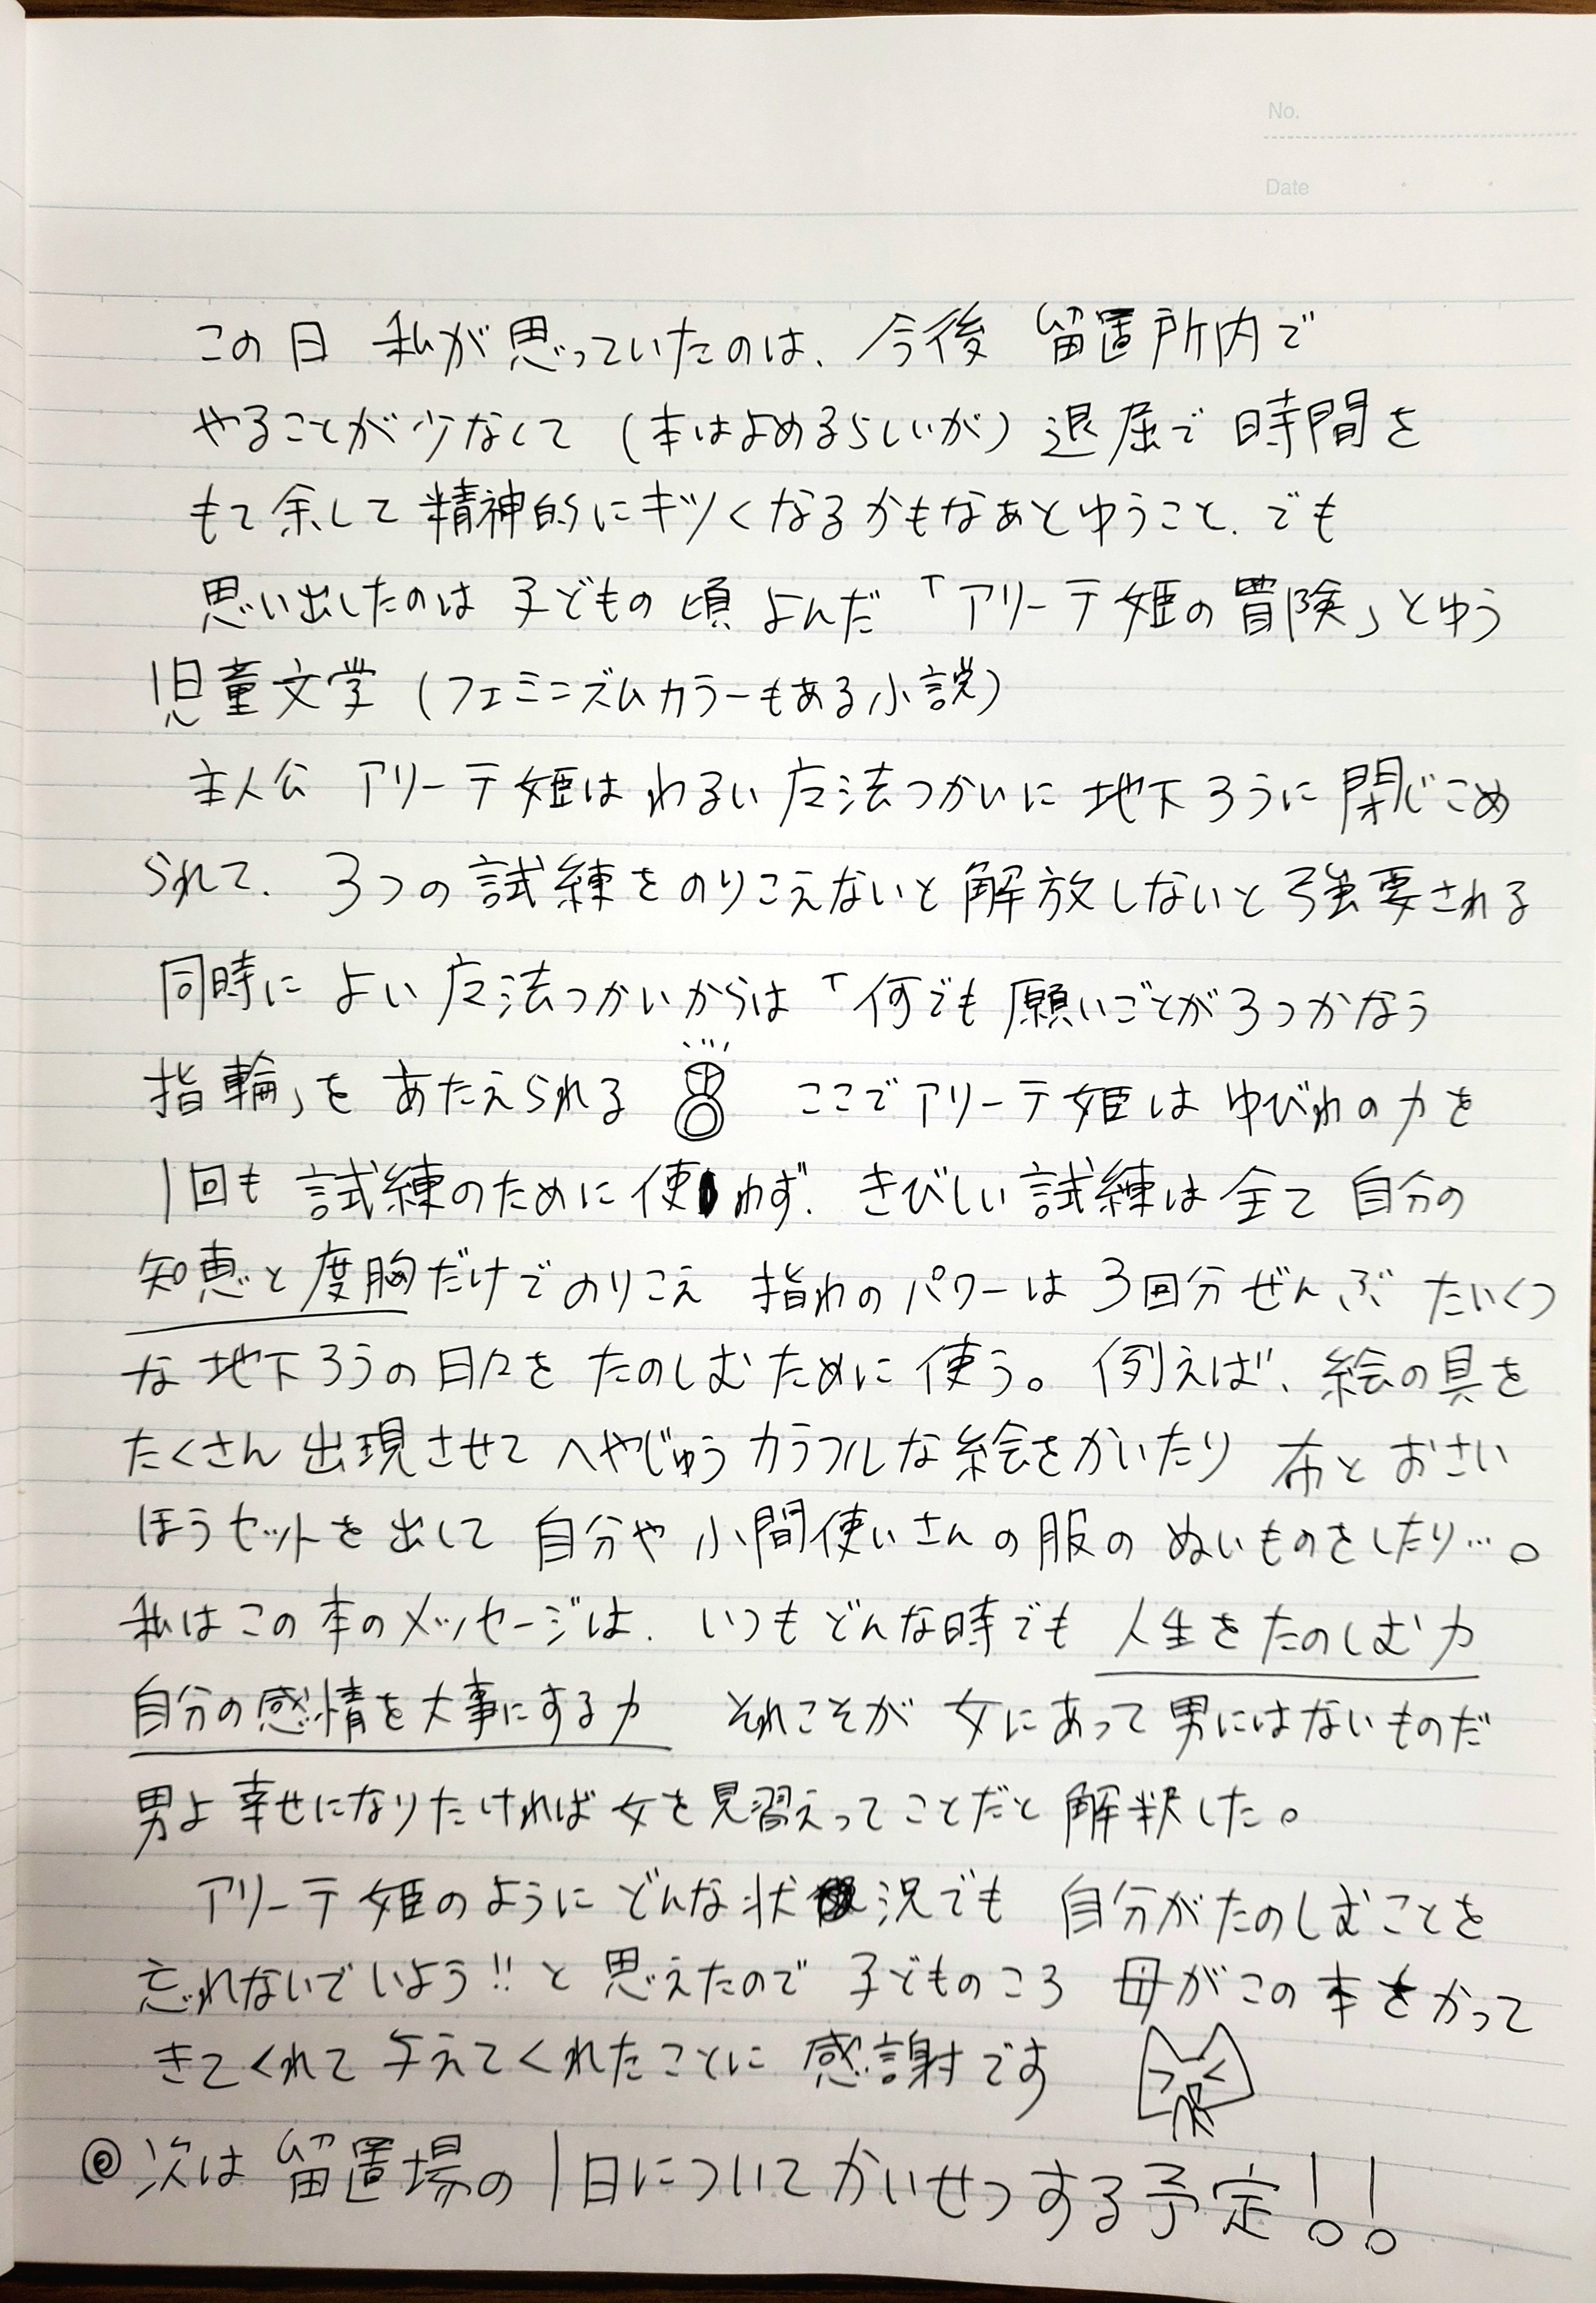 No.
Date
この日 私が思っていたのは、今後 留置所内で
やることが少なくて (本はよめるらしいが) 退屈で 時間を
もて余して精神的にキツくなるかもなぁとゆうこと.でも
思い出したのは 子どもの頃 よんだ「アリーテ姫の冒険」とゆう
児童文学 (フェミニズムカラーもある小説)
主人公 アリーテ姫は わるい 魔法つかいに 地下ろうに閉じこめ
られて. 3つの試練をのりこえないと解放しないと強要される
同時に よい 魔法つかいからは「何でも願いごとが3つかなう
指輪」を あたえられる ここでアリーテ姫は ゆびわの力を
1回も 試練のために使わず. きびしい試練は全て 自分の
知恵と度胸だけでのりこえ 指わのパワーは 3回分ぜんぶ たいくつ
な地下ろうの日々を たのしむために 使う。例えば、絵の具を
たくさん出現させて へやじゅうカラフルな絵をかいたり 布とおさい
ほうセットを出して 自分や小間使いさんの服の ぬいものをしたり…。
私はこの本のメッセージは. いつもどんな時でも 人生をたのしむ力
自分の感情を大事にする力 それこそが 女にあって男にはないものだ
男よ幸せになりたければ女を見習えってことだと解釈した。
アリーテ姫のようにどんな状況でも 自分がたのしむことを
忘れないでいよう!!と思えたので 子どものころ 母がこの本をかって
きてくれて与えてくれたことに 感謝です
◎次は留置場の1日についてかいせつする予定!!